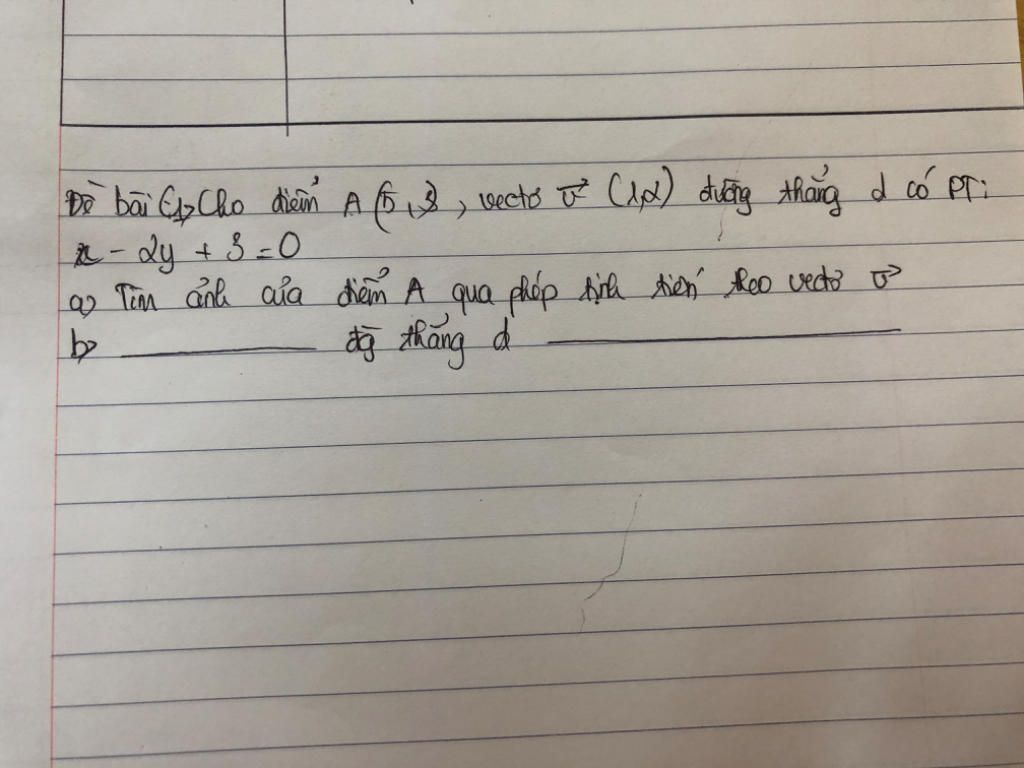 Đề bài C1> Cho điểm A (5,3), vectơ v (1,2) đường thẳng d có PT:
x - 2y + 3 = 0
a> Tìm ảnh của điểm A qua phép tịnh tiến theo vectơ v
b> ———— đg thẳng d ————